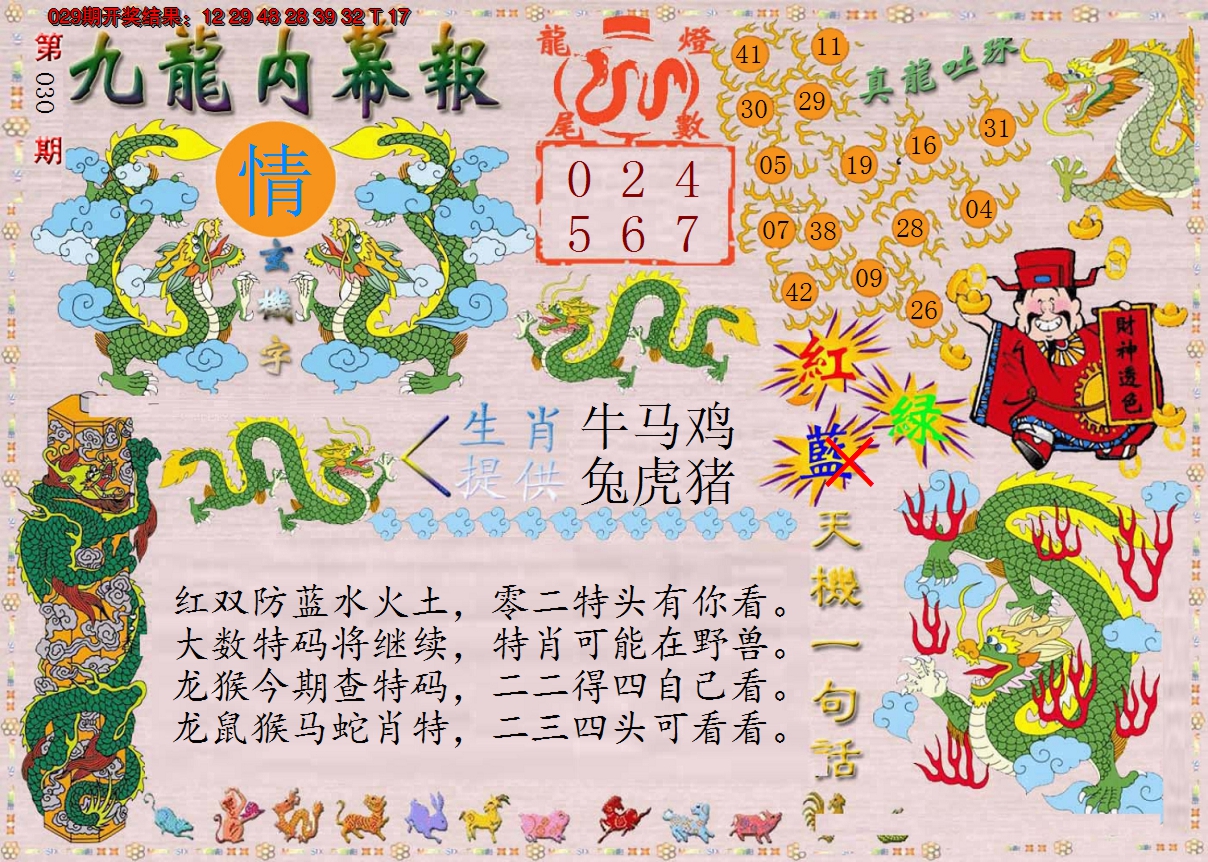 029期开奖结果：12 29 48 28 39 32 T 17
第030期
九龍内幕報
情
玄機字
龍燈
尾數
0 2 4
5 6 7
真龍吐珠
41 11
30 29
05 19 16 31
07 38 28 04
42 09 26
財神透色
紅
綠
藍
生肖提供
牛马鸡
兔虎猪
天機一句話
红双防蓝水火土，零二特头有你看。
大数特码将继续，特肖可能在野兽。
龙猴今期查特码，二二得四自己看。
龙鼠猴马蛇肖特，二三四头可看看。